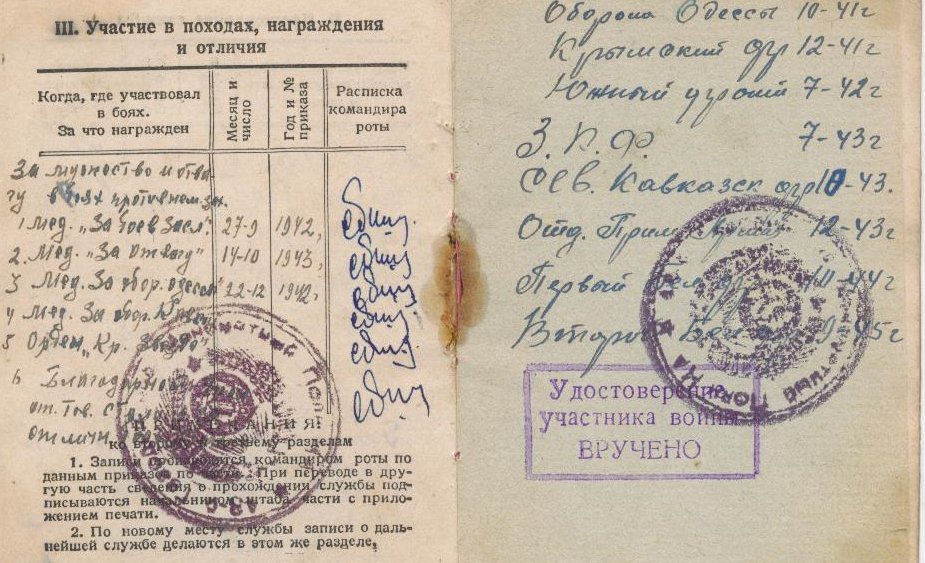 III. Участие в походах, награждения
и отличия
Когда, где участвовал
в боях.
За что награжден
Месяц и
число
Год и №
приказа
Расписка
командира
роты
За мужество и отва-
гу в боях
1 Мед. "За боев Засл." 27-9 1942,
2. Мед. "За отвагу" 14-10 1943,
3 Мед. За обор. Одессы 22-12 1942г
4 Мед. За обор. Крым
5 Орден "Кр. Звезда"
6 Благодарность
от Тов. С
отличн
ПРИМЕЧАНИЯ
ко второму и третьему разделам
1. Записи производятся командиром роты по
данным приказов по части. При переводе в дру-
гую часть сведения о прохождении службы под-
писываются начальником штаба части с прило-
жением печати.
2. По новому месту службы записи о даль-
нейшей службе делаются в этом же разделе,
Оборона Одессы 10-41г
Крымский фр 12-41г
Южный фронт 7-42г
З. К. Ф. 7-43г
Сев. Кавказск фр 10-43.
Отд. Прим Армия 12-43г
Первый Бел 44г
Второй Бел 9-45г
Удостоверение
участника войны
ВРУЧЕНО